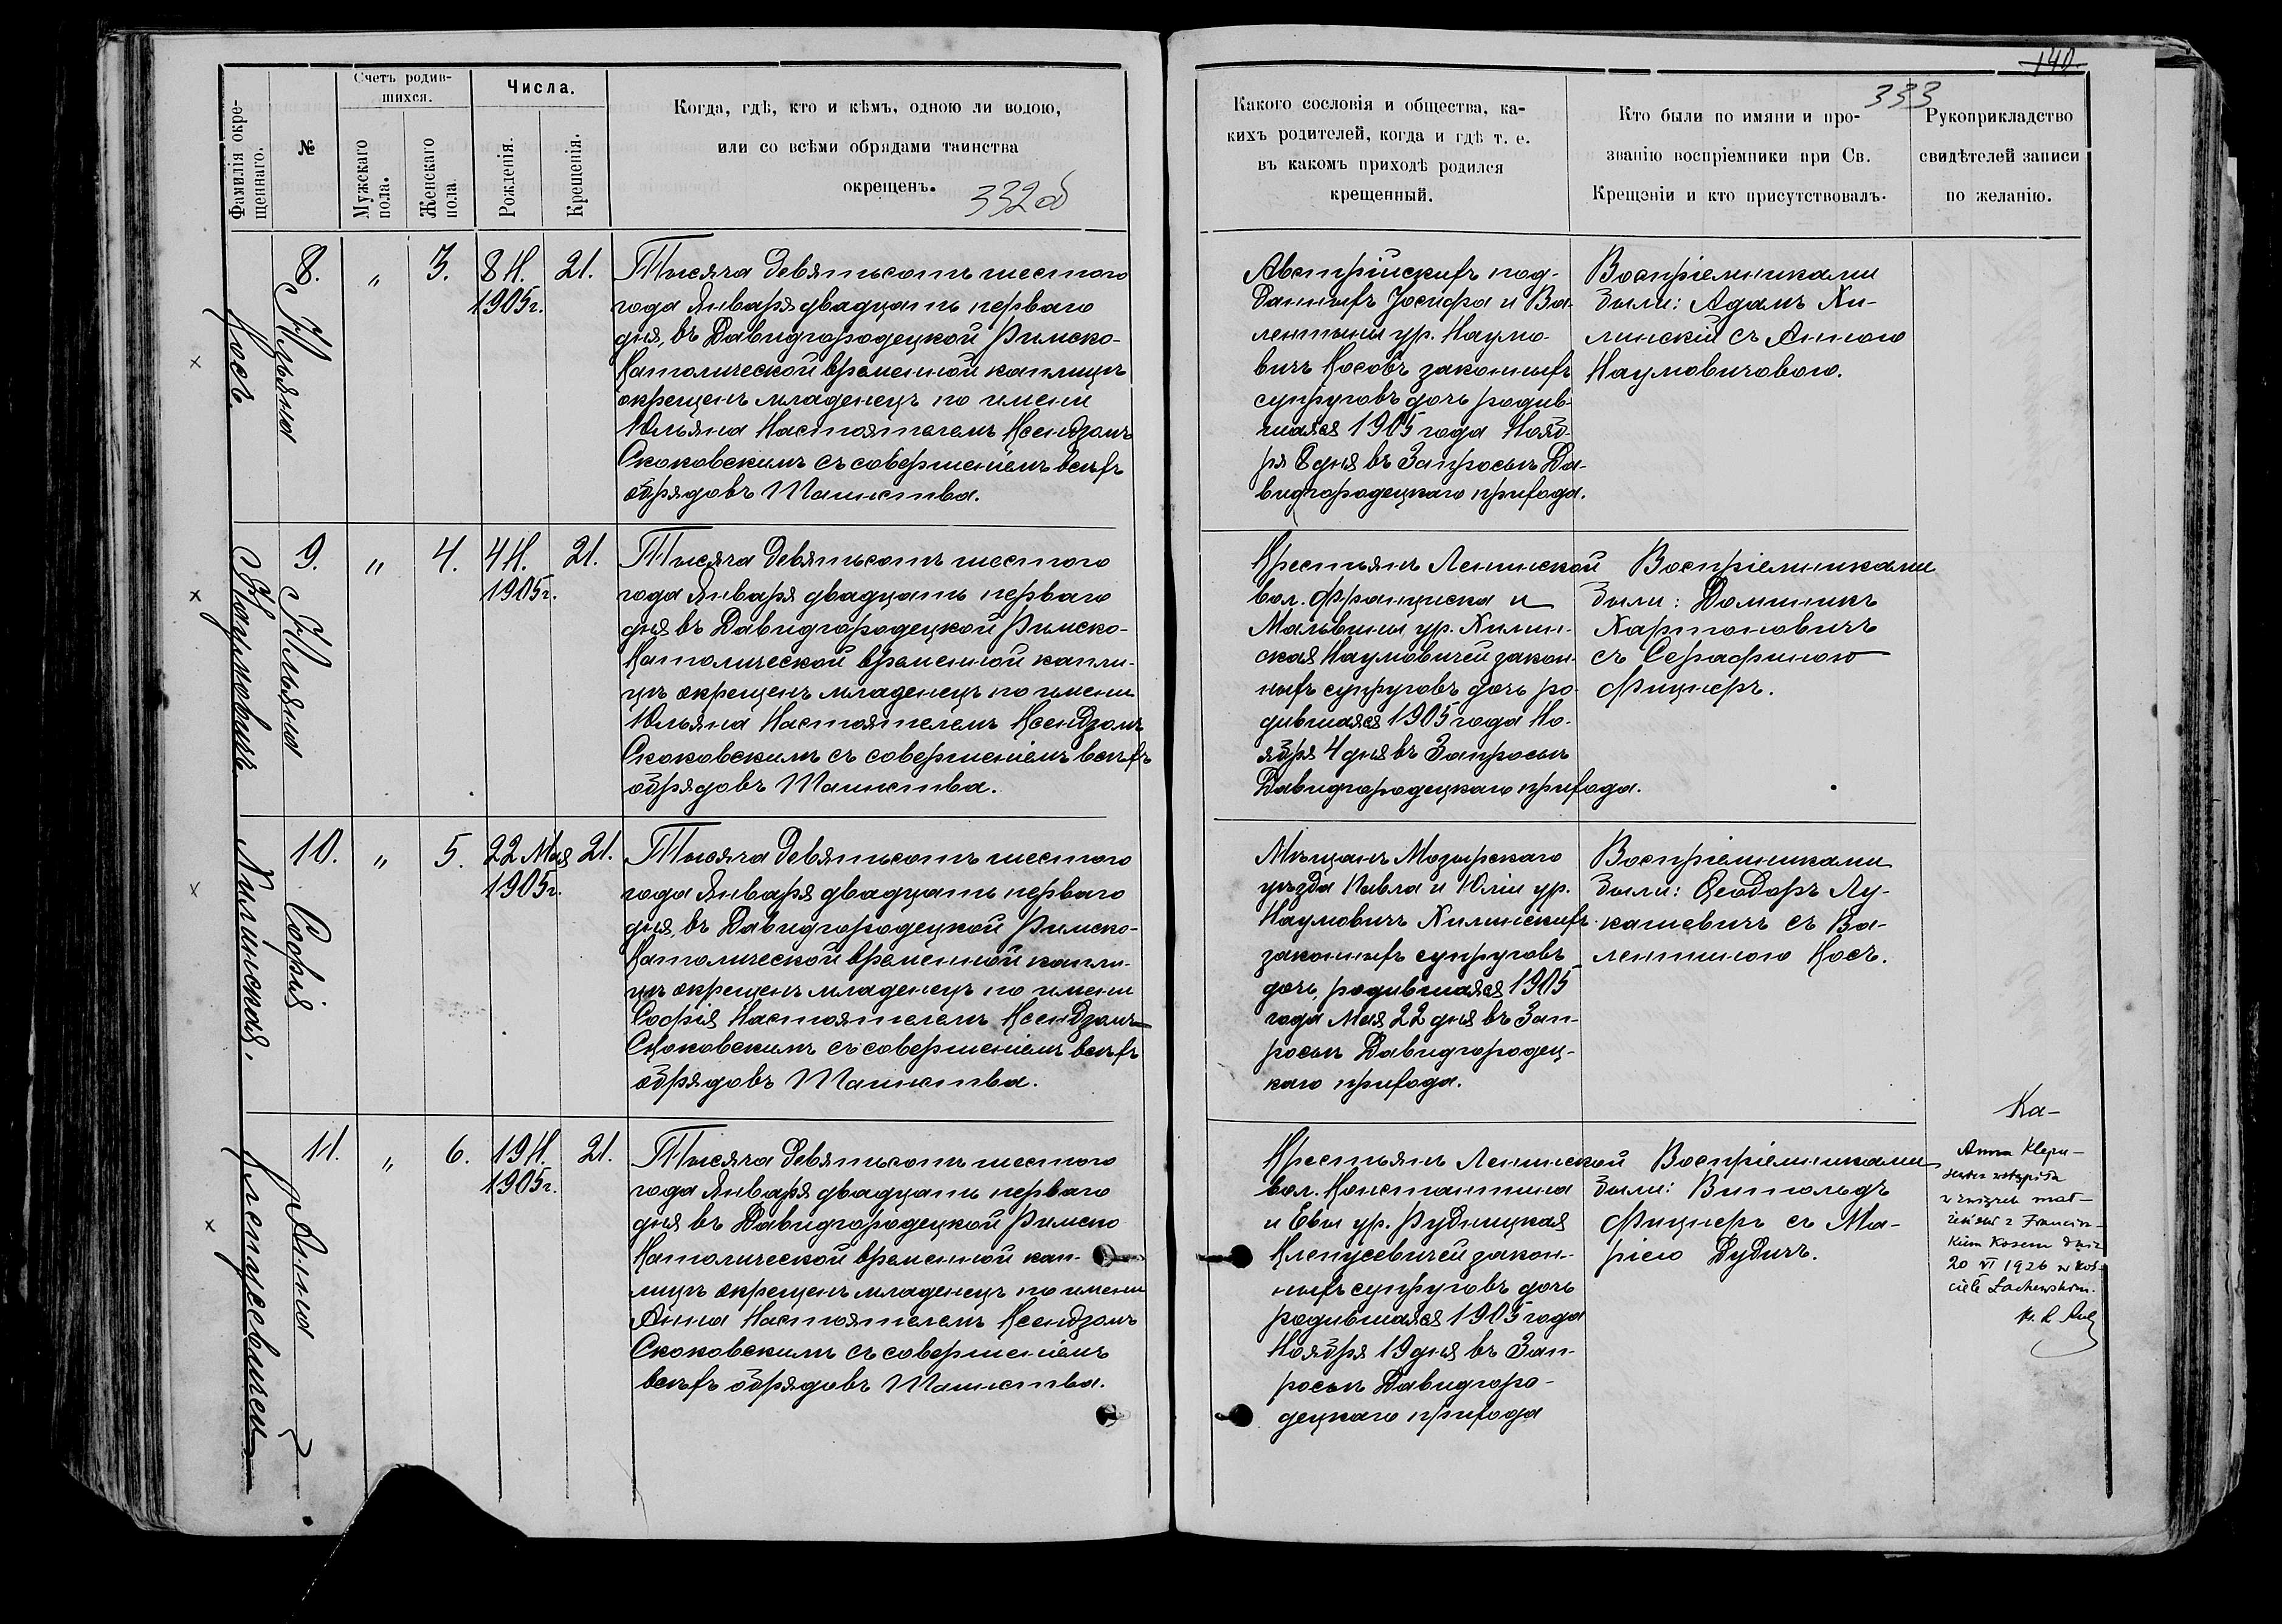 140.
333
Фамилія окре-
щеннаго.
№
Счетъ родив-
шихся.
Мужскаго
пола.
Женскаго
пола
Числа.
Рожденія.
Крещенія.
Когда, гдѣ, кто и кѣмъ, одною ли водою,
или со всѣми обрядами таинства
окрещенъ.
332об
Какого сословія и общества, ка-
кихъ родителей, когда и гдѣ т. е.
въ какомъ приходѣ родился
крещенный.
Кто были по имяни и про-
званію воспріемники при Св.
Крещеніи и кто присутствовалъ.
Рукоприкладство
свидѣтелей записи
по желанію.
Косъ.
8.
Юльяна
"
3.
8 Н.
1905г.
21.
Тысяча девятьсотъ шестого
года Января двадцать перваго
дня, въ Давидгородецкой Римско-
Католической временной каплицѣ
окрещенъ младенецъ по имени
Юльяна Настоятелемъ Ксендзомъ
Скоковскимъ съ совершеніемъ всѣхъ
обрядовъ Таинства.
Австрійскихъ под-
данныхъ Іосифа и Ва-
лентыны ур. Наумо-
вичъ Косовъ законныхъ
супруговъ дочь родив-
шаяся 1905 года Нояб-
ря 8 дня въ Запросьѣ Да-
видгородецкаго прихода.
Воспріемниками
были: Адамъ Хи-
линскій съ Анною
Наумовичовою.
Наумовичъ
9.
Юльяна
"
4.
4 Н.
1905г.
21.
Тысяча девятьсотъ шестого
года Января двадцать перваго
дня въ Давидгородецкой Римско-
Католической временной капли-
цѣ окрещенъ младенецъ по имени
Юльяна Настоятелемъ Ксендзомъ
Скоковскимъ съ совершеніемъ всѣхъ
обрядовъ Таинства.
Крестьянъ Ленинской
вол. Франциска и
Мальвины ур. Хилин-
ская Наумовичей закон-
ныхъ супруговъ дочь ро-
дившаяся 1905 года Но-
ября 4 дня въ Запросьѣ
Давидгородецкаго прихода.
Воспріемниками
были: Доминикъ
Харитоновичъ
съ Серафиною
Фицнеръ.
Хилинская.
10.
Софія
"
5.
22 Мая
1905г.
21.
Тысяча девятьсотъ шестого
года Января двадцать перваго
дня, въ Давидгородецкой Римско-
Католической временной капли-
цѣ окрещенъ младенецъ по имени
Софія Настоятелемъ Ксендзомъ
Скоковскимъ съ совершеніемъ всѣхъ
обрядовъ Таинства.
Мѣщанъ Мозырскаго
уѣзда Павла и Юліи ур.
Наумовичъ Хилинскихъ
законныхъ супруговъ
дочь, родившаяся 1905
года Мая 22 дня въ Зап-
росьѣ Давидгородец-
каго прихода.
Воспріемниками
были: Ѳеодоръ Лу-
кашевичъ съ Ва-
лентиною Косъ.
Клепусевичей
11.
Анна
"
6.
19 Н.
1905г.
21.
Тысяча девятьсотъ шестого
года Января двадцать перваго
дня въ Давидгородецкой Римско
Католической временной кап-
лицѣ окрещенъ младенецъ по имени
Анна Настоятелемъ Ксендзомъ
Скоковскимъ съ совершеніемъ
всѣхъ обрядовъ Таинства.
Крестьянъ Ленинской
вол. Константина
и Евы ур. Рудницкая
Клепусевичей закон-
ныхъ супруговъ дочь
родившаяся 1905 года
Ноября 19 дня въ Зап-
росьѣ Давидгоро-
децкаго прихода
Воспріемниками
были: Витольдъ
Фицнеръ съ Ма-
ріею Дудичъ.
Ka-
Anna Klepu-
wstąpiła
w związek mał-
żeński z Francisz-
kiem Kosem dnia
20 VI 1926 w koś-
ciele Łachewskim.